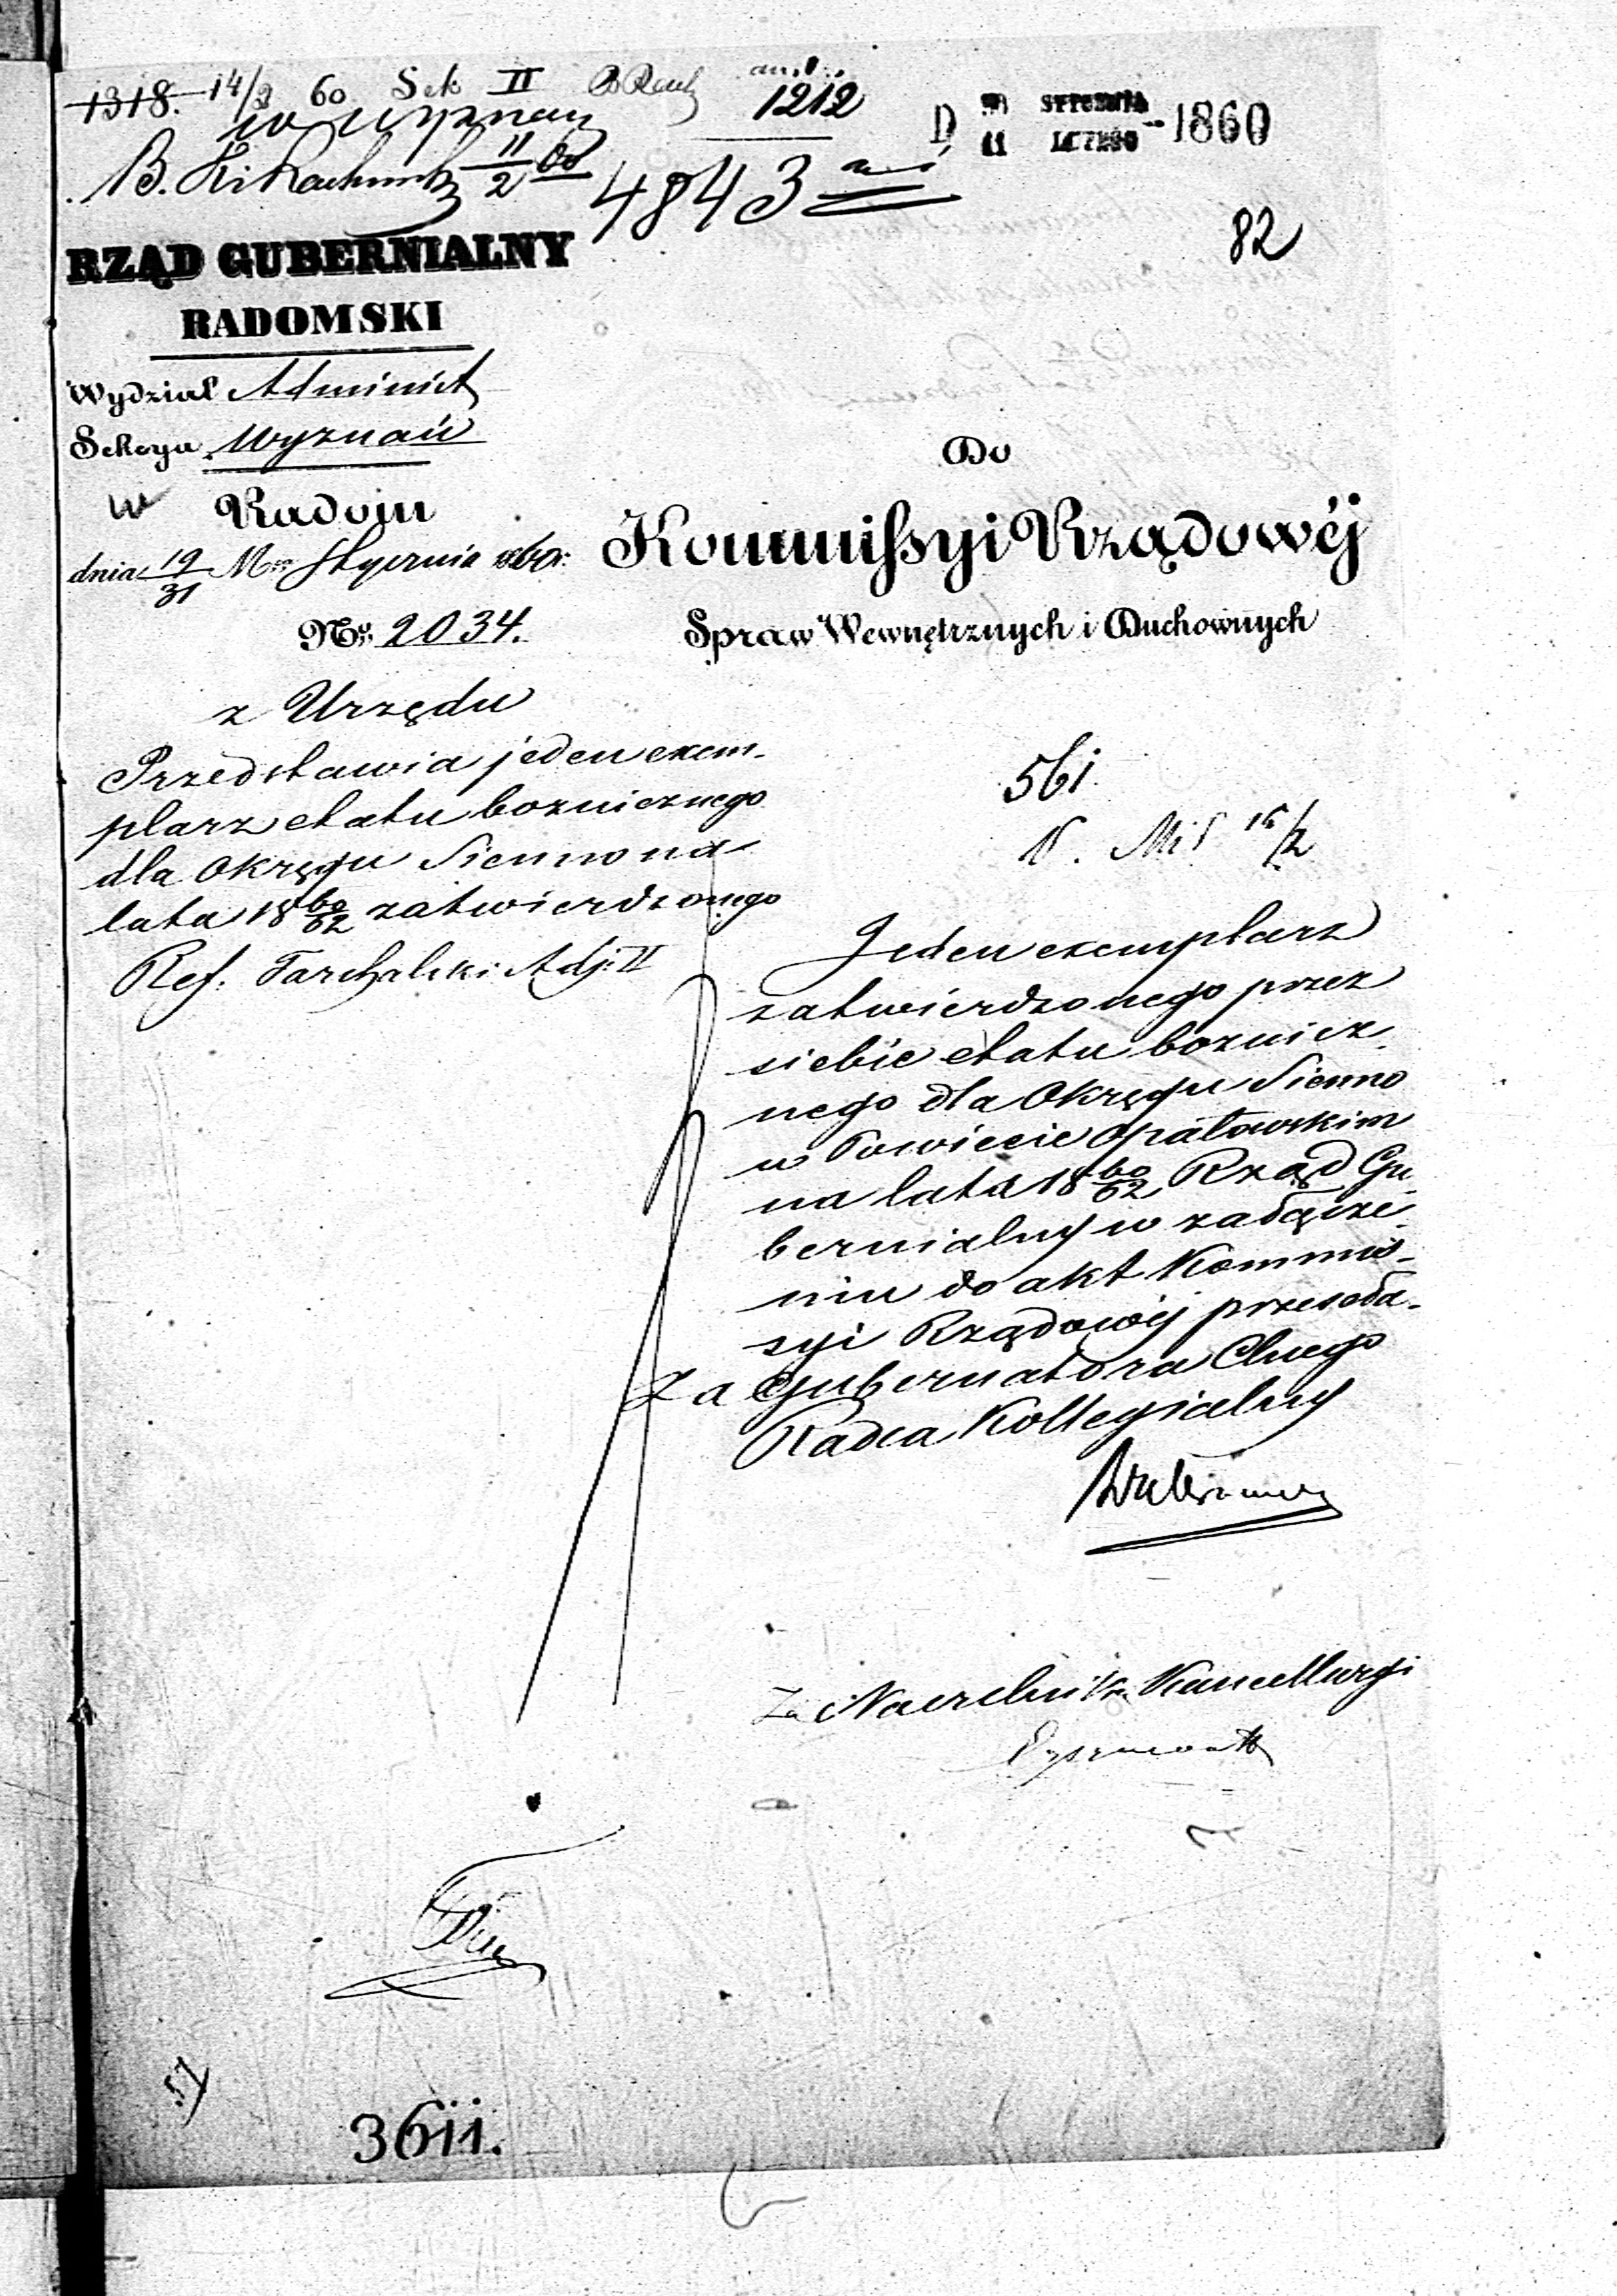 1318. 14/2 60 Sek II
1212
w wyznań
D STYCZNIA
11 LUTEGO 1860
11/2 60
4843
82
RZĄD GUBERNIALNY
RADOMSKI
Wydział Administ
Sekcya Wyznań
w Radom
dnia 19/31 Mca Stycznia 1860r:
No. 2034.
Do
Kommissyi Rządowéj
Spraw Wewnętrznych i Duchownych
z Urzędu
Przedstawia jeden exem-
plarz etatu boznicznego
dla Okręgu Sienno na
lata 18 60/62 zatwierdzonego
Ref. Tarchalski Adj: II
561.
Jeden exemplarz
zatwierdzonego przez
siebie etatu boznicz-
nego dla Okręgu Sienno
w Powiecie Opatowskim
na lata 18 60/62 Rząd Gu-
bernialny w załącze-
niu do akt Kommis-
syi Rządowéj przeseła.
Za Gubernatora Clnego
Radca Kollegialny
Za Naczelnika Kancellaryi
3611.